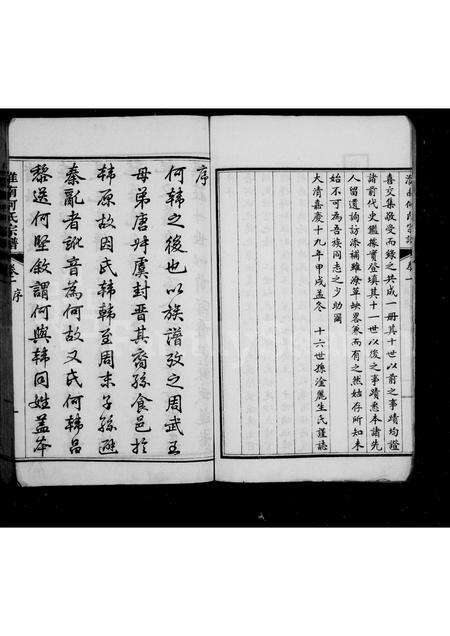 喜交集敬受而錄之共成一册其十世以前之事蹟均證
諸前代史鑑摭實登填其十一世以後之事蹟悉本諸先
人留遺詢訪添補雖潦草缺畧兼而有之然姑存所知未
始不可為吾族同志之少助爾
大清嘉慶十九年甲戌孟冬 十六世孫淦麗生氏謹誌
序
何韓之後也以族譜攷之周武王
母弟唐叔虞封晋其裔孫食邑於
韓原故因氏韓韓至周末子孫避
秦亂者訛音為何故又氏何韓昌
黎送何堅敘謂何與韓同姓為近
淮南何氏宗譜 卷一 序